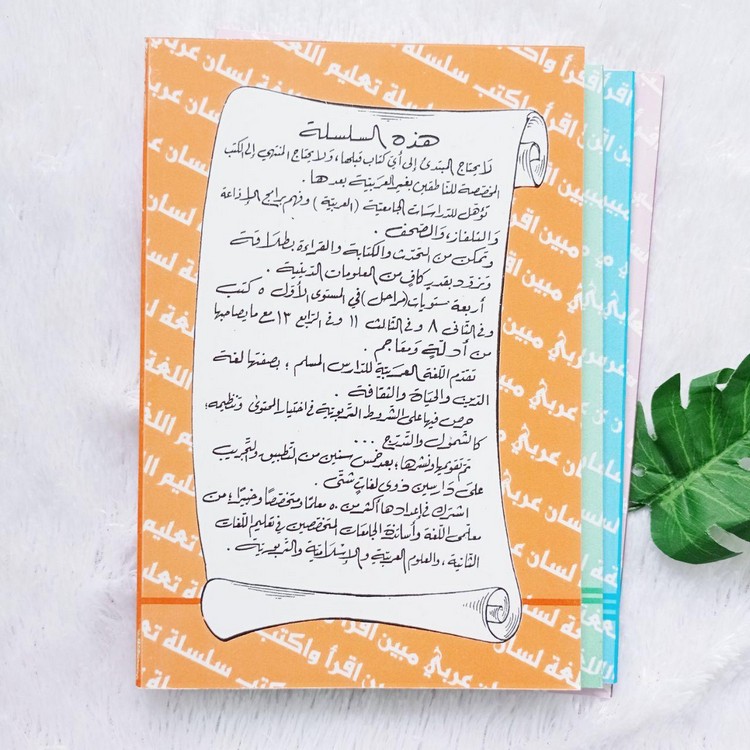 هذه السلسلة
لا يحتاج المبتدئ إلى أي كتاب قبلها، ولا يحتاج المنتهي إلى الكتب
المخصصة للناطقين بغير العربية بعدها.
تؤهل للدراسات الجامعية (العربية) وفهم برامج الإذاعة
والتلفاز، والصحف.
وتمكن من التحدث والكتابة والقراءة بطلاقة
وتزود بقدر كافي من العلومات الدينية.
أربعة مستويات (مراحل) في المستوى الأول ٥ كتب
وفي الثاني ٨ وفي الثالث ١١ وفي الرابع ١٣ مع ما يصاحبها
من أدلةٍ ومعاجم.
تقدم اللغة العربية للدارس المسلم؛ بصفتها لغة
الدين والحياة والثقافة.
حرص فيها على الشروط التربوية في اختيار المحتوى وتنظيمه؛
كالشمول والتدرج ...
تم تقويمها ونشرها؛ بعد خمس سنين من التطبيق والتجريب
على دارسين ذوي لغاتٍ شتَّى.
اشترك في إعدادها أكثر من ٥٠ معلمًا ومتخصصًا وخبيرًا؛ من
معلمي اللغة وأساتذة الجامعات المتخصصين في تعليم اللغات
الثانية، والعلوم العربية والإسلامية والتربوية.
سلسلة تعليم اللغة
لسان عربي مبين
اقرأ واكتب